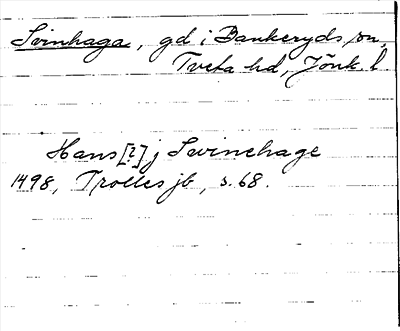 Svinhaga, gd i Bankeryds sn,
Tveta hd, Jönk. l
Hans [?] j Swinehage
1498, Trolles jb, s. 68.